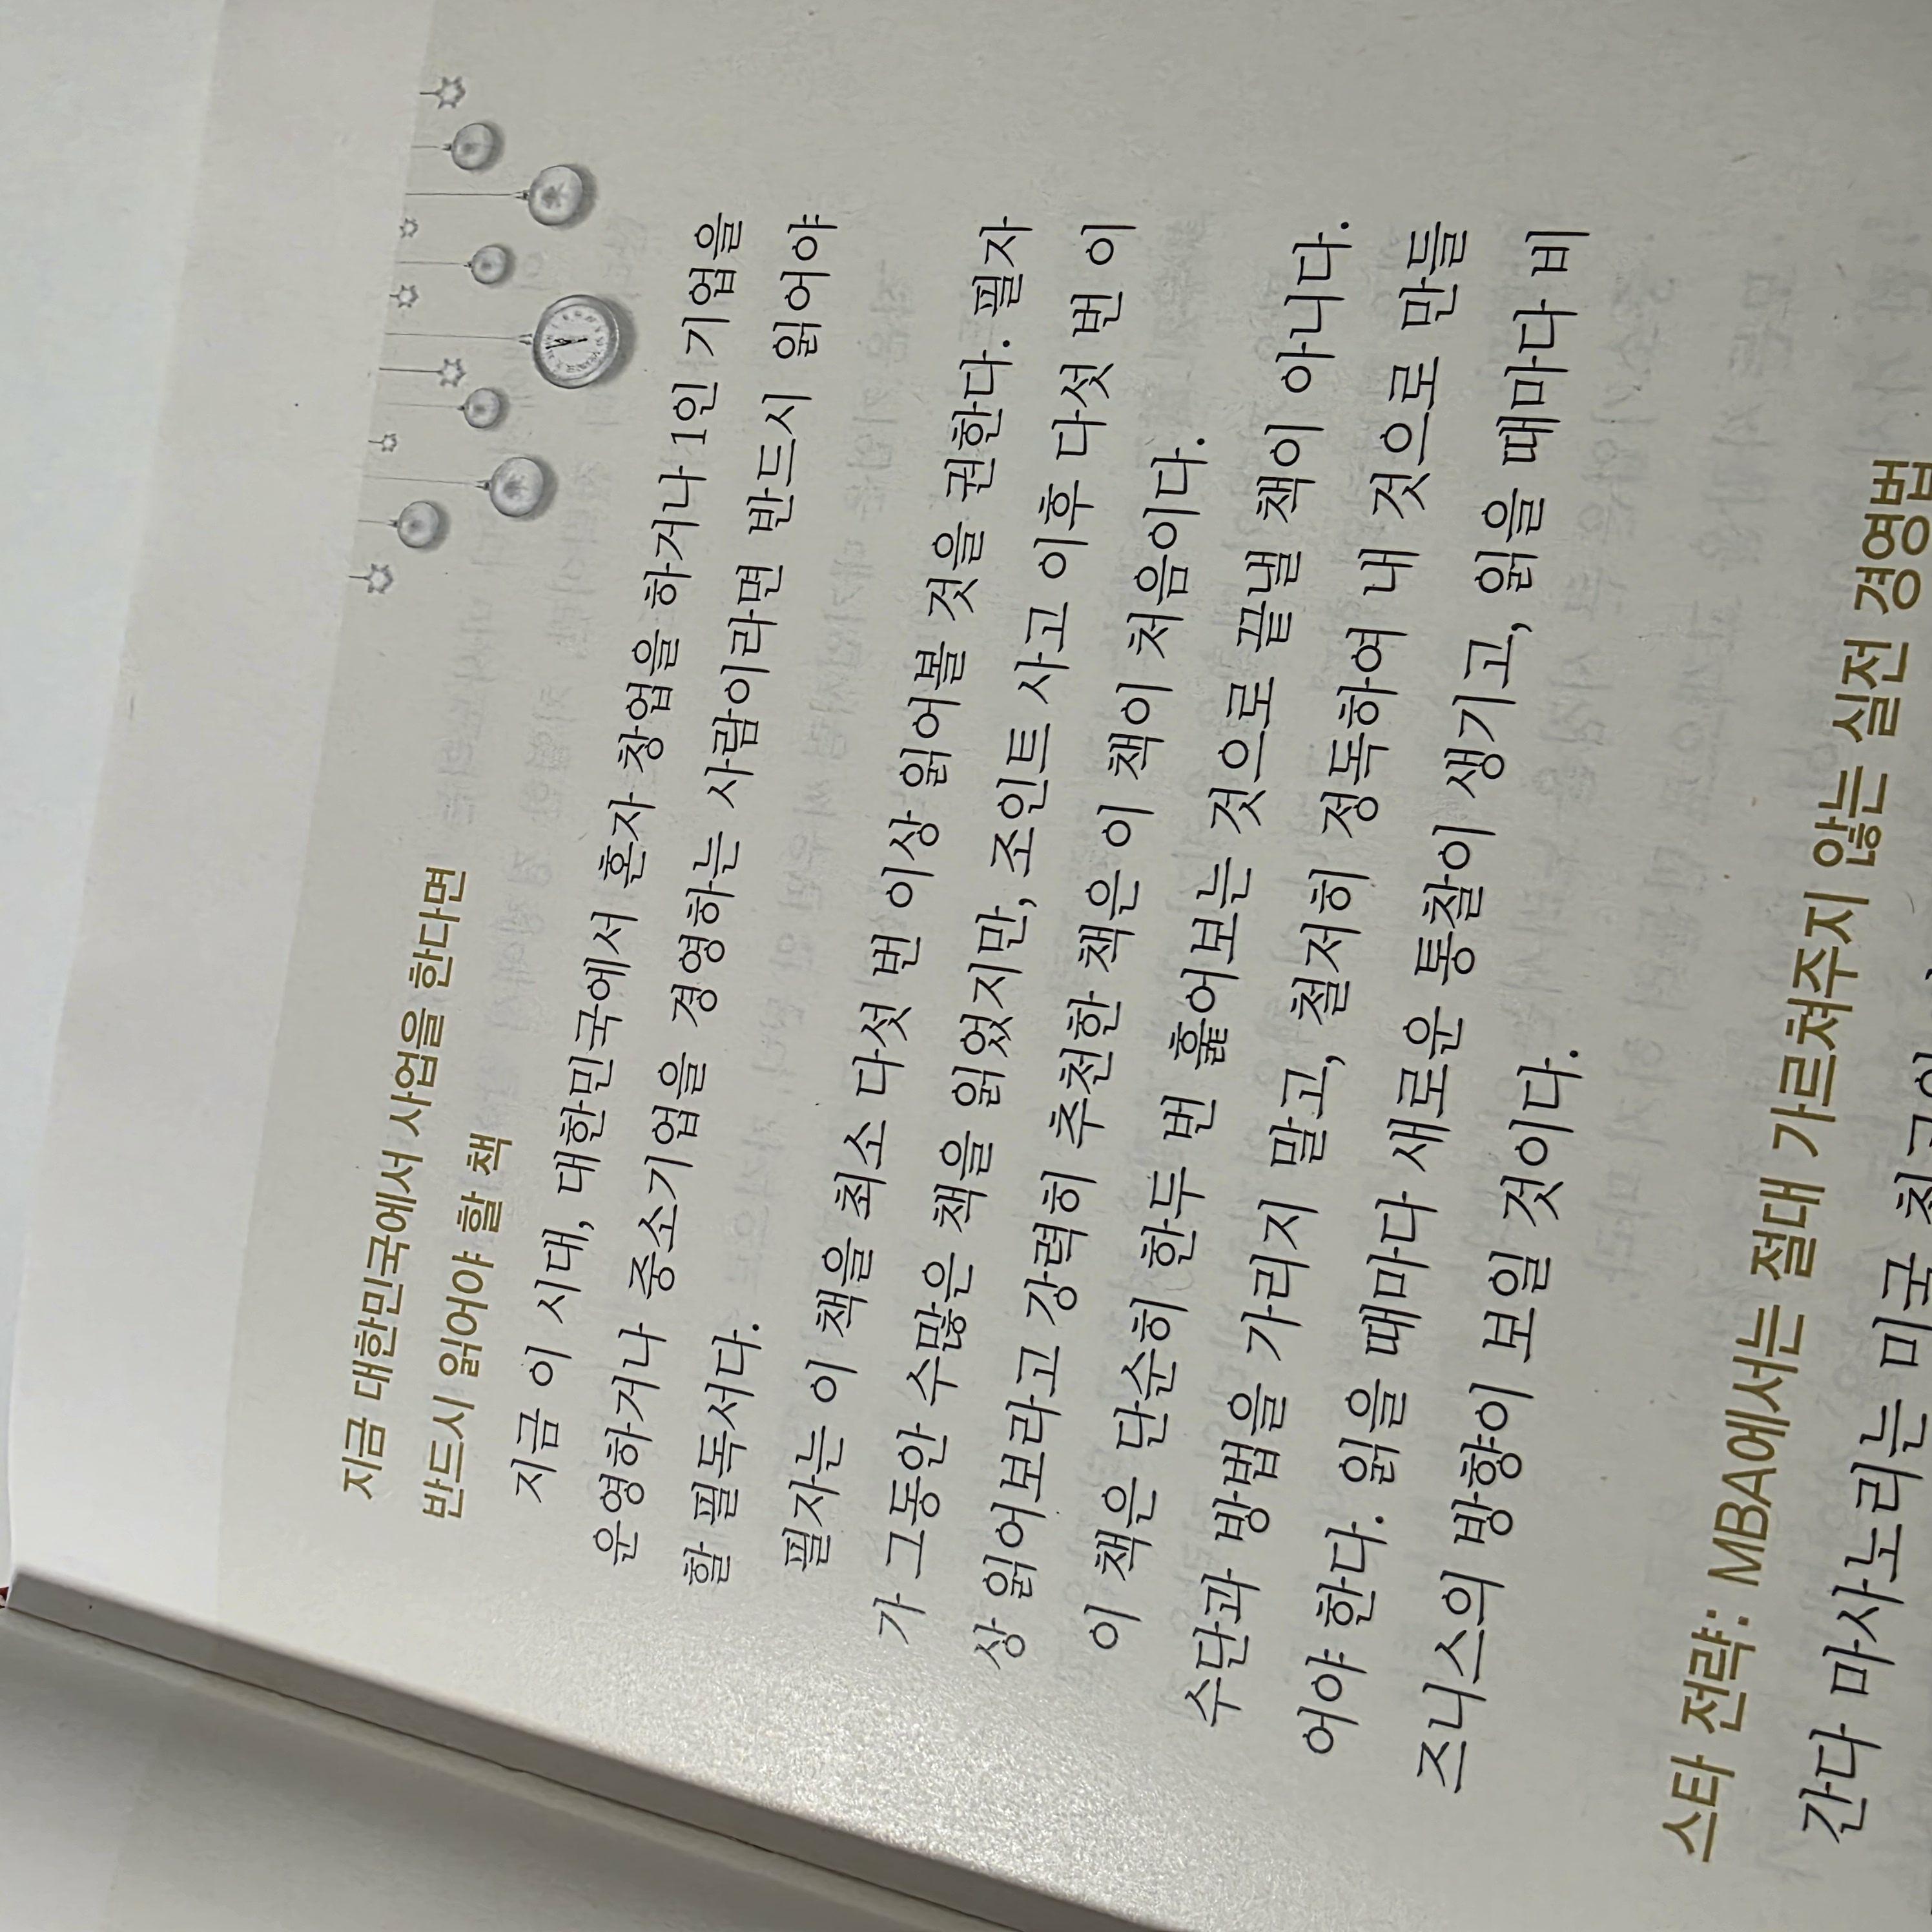 지금 대한민국에서 사업을 한다면
반드시 읽어야 할 책
지금 이 시대, 대한민국에서 혼자 창업을 하거나 1인 기업을
운영하거나 중소기업을 경영하는 사람이라면 반드시 읽어야
할 필독서다.
필자는 이 책을 최소 다섯 번 이상 읽어볼 것을 권한다. 필자
가 그동안 수많은 책을 읽었지만, 조인트 사고 이후 다섯 번 이
상 읽어보라고 강력히 추천한 책은 이 책이 처음이다.
이 책은 단순히 한두 번 훑어보는 것으로 끝낼 책이 아니다.
수단과 방법을 가리지 말고, 철저히 정독하여 내 것으로 만들
어야 한다. 읽을 때마다 새로운 통찰이 생기고, 읽을 때마다 비
즈니스의 방향이 보일 것이다.
스타 전략: MBA에서는 절대 가르쳐주지 않는 실전 경영법
간다 마사노리는 미국 최고의